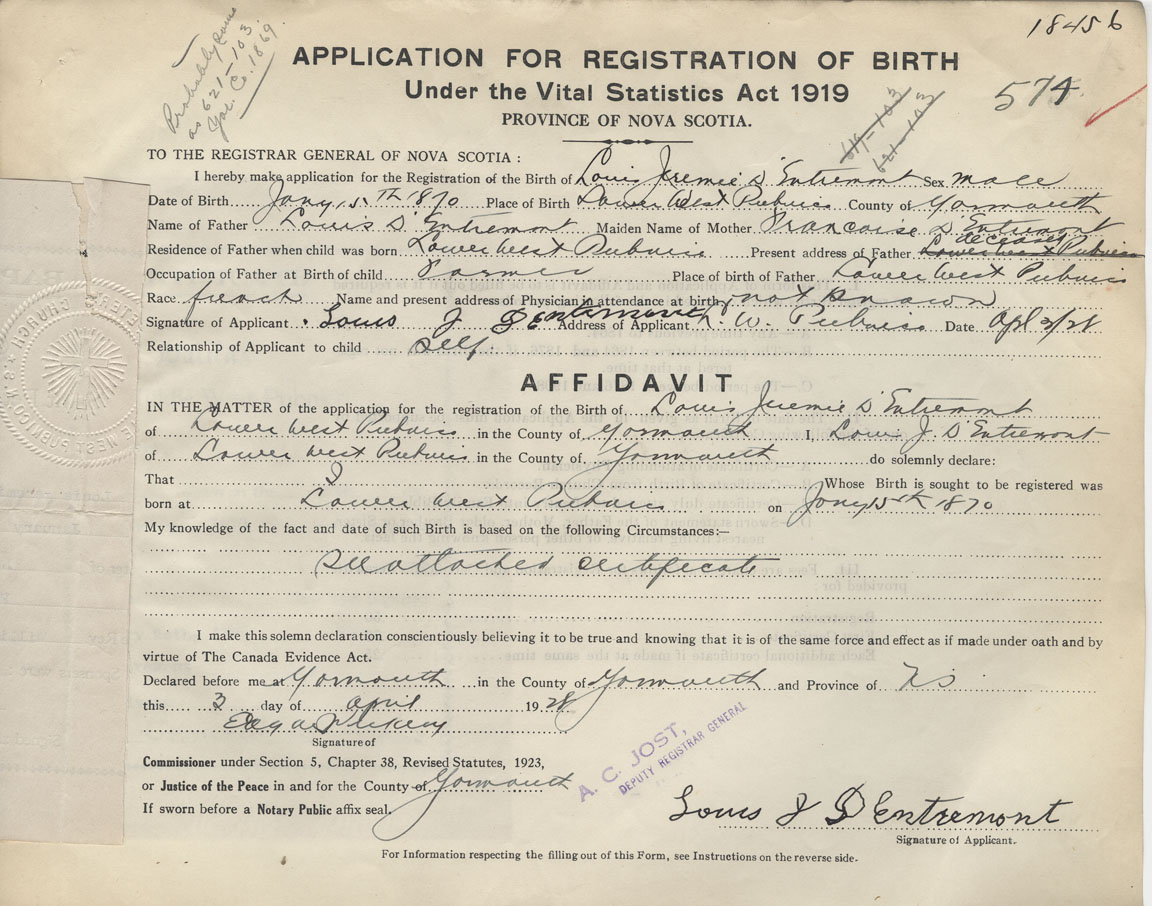 18456
Probably same
as 621-103
Yar. Co. 1869.
APPLICATION FOR REGISTRATION OF BIRTH
Under the Vital Statistics Act 1919
574
PROVINCE OF NOVA SCOTIA.
619-103
621-103
TO THE REGISTRAR GENERAL OF NOVA SCOTIA :
I hereby make application for the Registration of the Birth of Louis Jeremie D'Entremont Sex male
Date of Birth Jany 15th 1870 Place of Birth Lower West Pubnico County of Yarmouth
Name of Father Louis D'Entremont Maiden Name of Mother Francoise D'Entremont
Residence of Father when child was born Lower West Pubnico Present address of Father Lower West Pubnico deceased
Occupation of Father at Birth of child Farmer Place of birth of Father Lower West Pubnico
Race french Name and present address of Physician in attendance at birth not known
Signature of Applicant Louis J D Entremont Address of Applicant L. W. Pubnico Date Apl 3/28
Relationship of Applicant to child Self
AFFIDAVIT
IN THE MATTER of the application for the registration of the Birth of Louis Jeremie D'Entremont
of Lower West Pubnico in the County of Yarmouth I, Louis J. D'Entremont
of Lower West Pubnico in the County of Yarmouth do solemnly declare:
That I Whose Birth is sought to be registered was
born at Lower West Pubnico on Jany 15th 1870
My knowledge of the fact and date of such Birth is based on the following Circumstances:—
See attached certificate
I make this solemn declaration conscientiously believing it to be true and knowing that it is of the same force and effect as if made under oath and by
virtue of The Canada Evidence Act.
Declared before me at Yarmouth in the County of Yarmouth and Province of NS
this 3 day of April 1928
Signature of
Commissioner under Section 5, Chapter 38, Revised Statutes, 1923,
or Justice of the Peace in and for the County of Yarmouth
If sworn before a Notary Public affix seal.
A. C. JOST,
DEPUTY REGISTRAR GENERAL
Louis J D Entremont
Signature of Applicant.
For Information respecting the filling out of this Form, see Instructions on the reverse side.